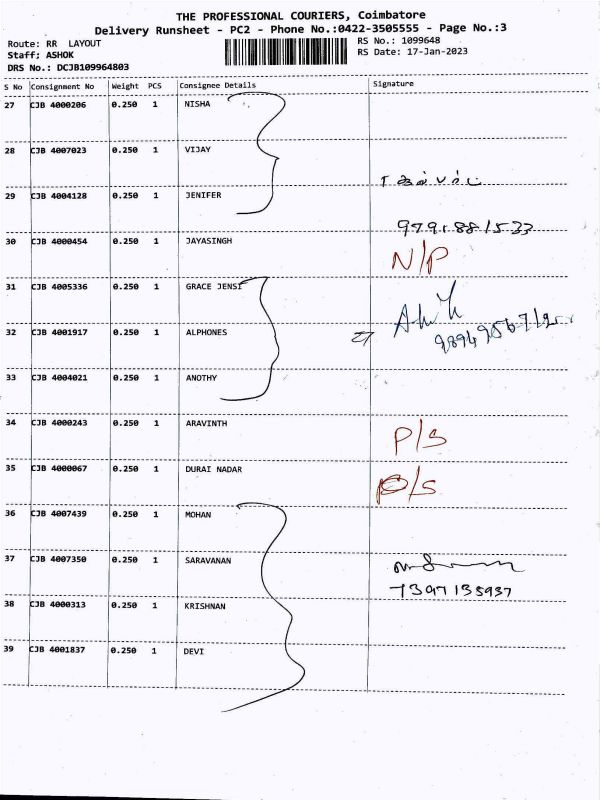 THE PROFESSIONAL COURIERS, Coimbatore
Delivery Runsheet - PC2 - Phone No.:0422-3505555 - Page No.:3
Route: RR LAYOUT RS No.: 1099648
Staff; ASHOK RS Date: 17-Jan-2023
DRS No.: DCJB109964803
S No Consignment No Weight PCS Consignee Details Signature
27 CJB 4000206 0.250 1 NISHA
28 CJB 4007023 0.250 1 VIJAY
29 CJB 4004128 0.250 1 JENIFER
9791881533
30 CJB 4000454 0.250 1 JAYASINGH
N/P
31 CJB 4005336 0.250 1 GRACE JENSI
32 CJB 4001917 0.250 1 ALPHONES
33 CJB 4004021 0.250 1 ANOTHY
34 CJB 4000243 0.250 1 ARAVINTH
P/S
35 CJB 4000067 0.250 1 DURAI NADAR
P/S
36 CJB 4007439 0.250 1 MOHAN
37 CJB 4007350 0.250 1 SARAVANAN
7397135937
38 CJB 4000313 0.250 1 KRISHNAN
39 CJB 4001837 0.250 1 DEVI